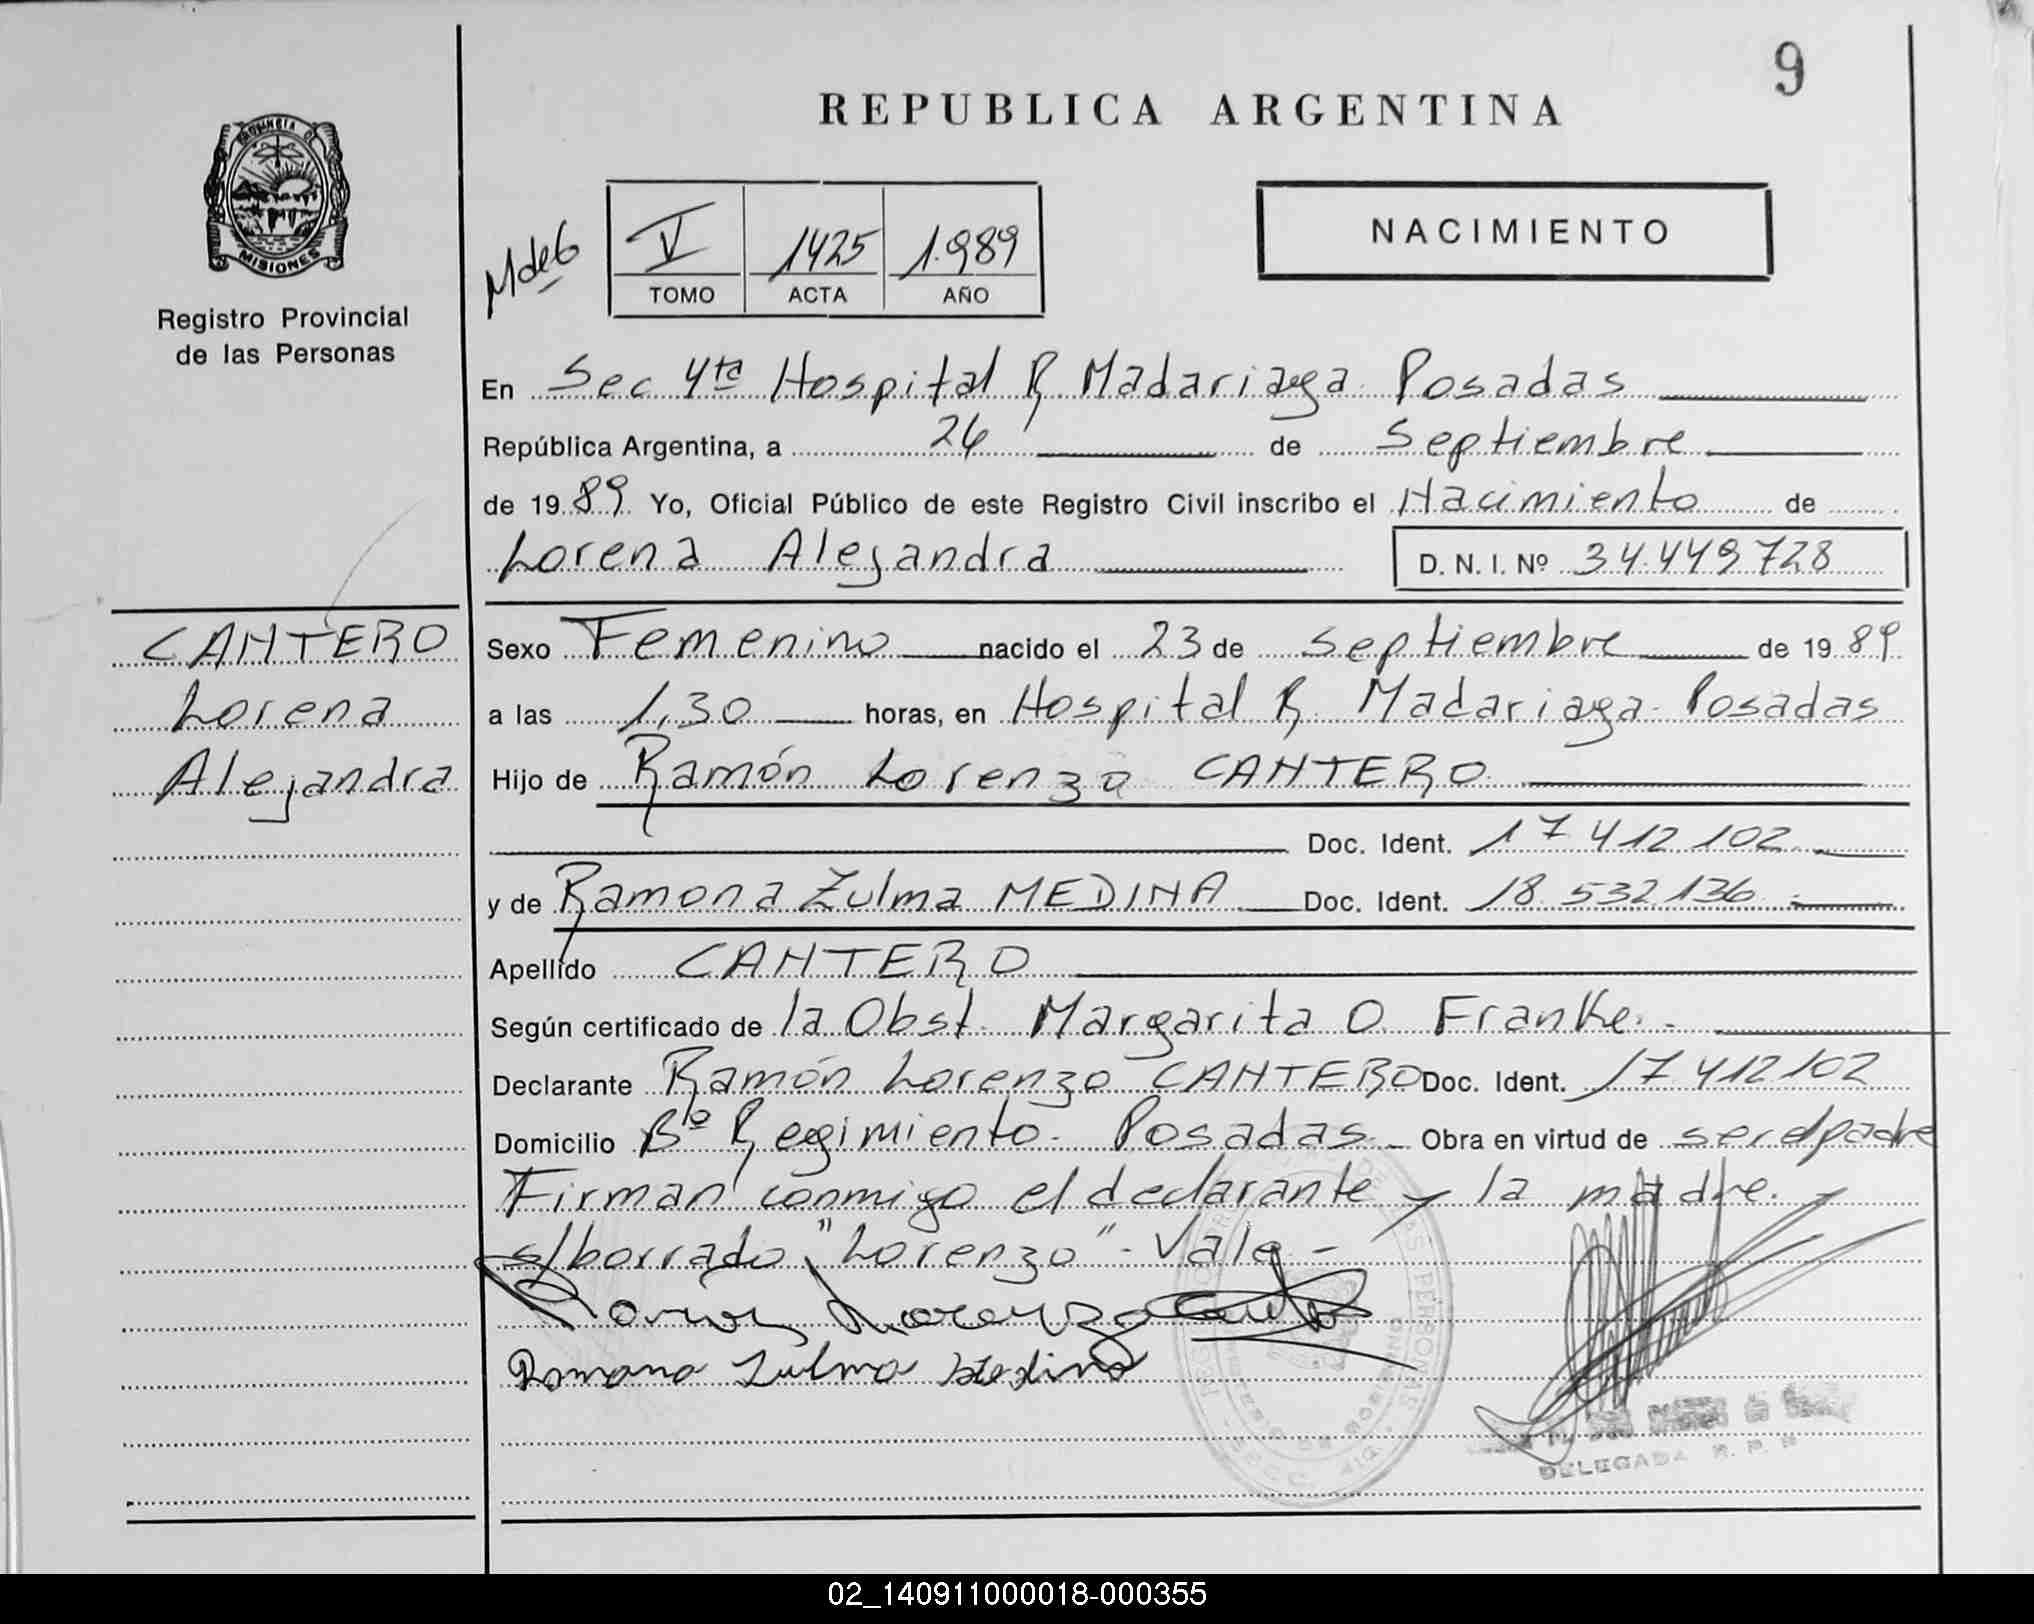 9
REPUBLICA ARGENTINA
PROVINCIA DE
MISIONES
Registro Provincial
de las Personas
Mde6
V 1425 1.989
TOMO ACTA AÑO
NACIMIENTO
En Sec 4ta Hospital R. Madariaga. Posadas
República Argentina, a 26 de Septiembre
de 1989 Yo, Oficial Público de este Registro Civil inscribo el Nacimiento de
Lorena Alejandra D. N. I. Nº 34.449728
CANTERO
Lorena
Alejandra
Sexo Femenino nacido el 23 de Septiembre de 1989
a las 1,30 horas, en Hospital R. Madariaga. Posadas
Hijo de Ramón Lorenzo CANTERO
Doc. Ident. 17.412.102
y de Ramona Zulma MEDINA Doc. Ident. 18.532.136
Apellido CANTERO
Según certificado de la Obst. Margarita O. Franke.-
Declarante Ramón Lorenzo CANTERO Doc. Ident. 17.412.102
Domicilio Bº Regimiento. Posadas.- Obra en virtud de ser el padre
Firman conmigo el declarante y la madre.
s/borrado "Lorenzo"- Vale -
Ramon Lorenzo Cantero
Ramona Zulma Medina
DELEGADA R. P. P.
02_140911000018-000355